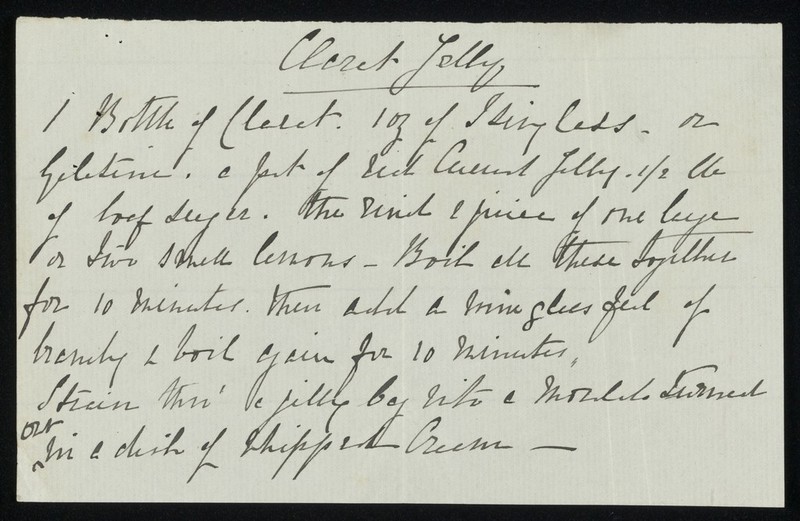 Claret Jelly
1 Bottle of Claret. 1oz of Isinglass - or
Gelatine. a pot of red Currant Jelly. 1/2 lb
of loaf sugar. The rind & juice of one large
or two small lemons - Boil all these together
for 10 minutes. then add a wineglassful of
brandy & boil again for 10 minutes.
Strain thro' a jelly bag into a mould turned
out
in a dish of whipped Cream -